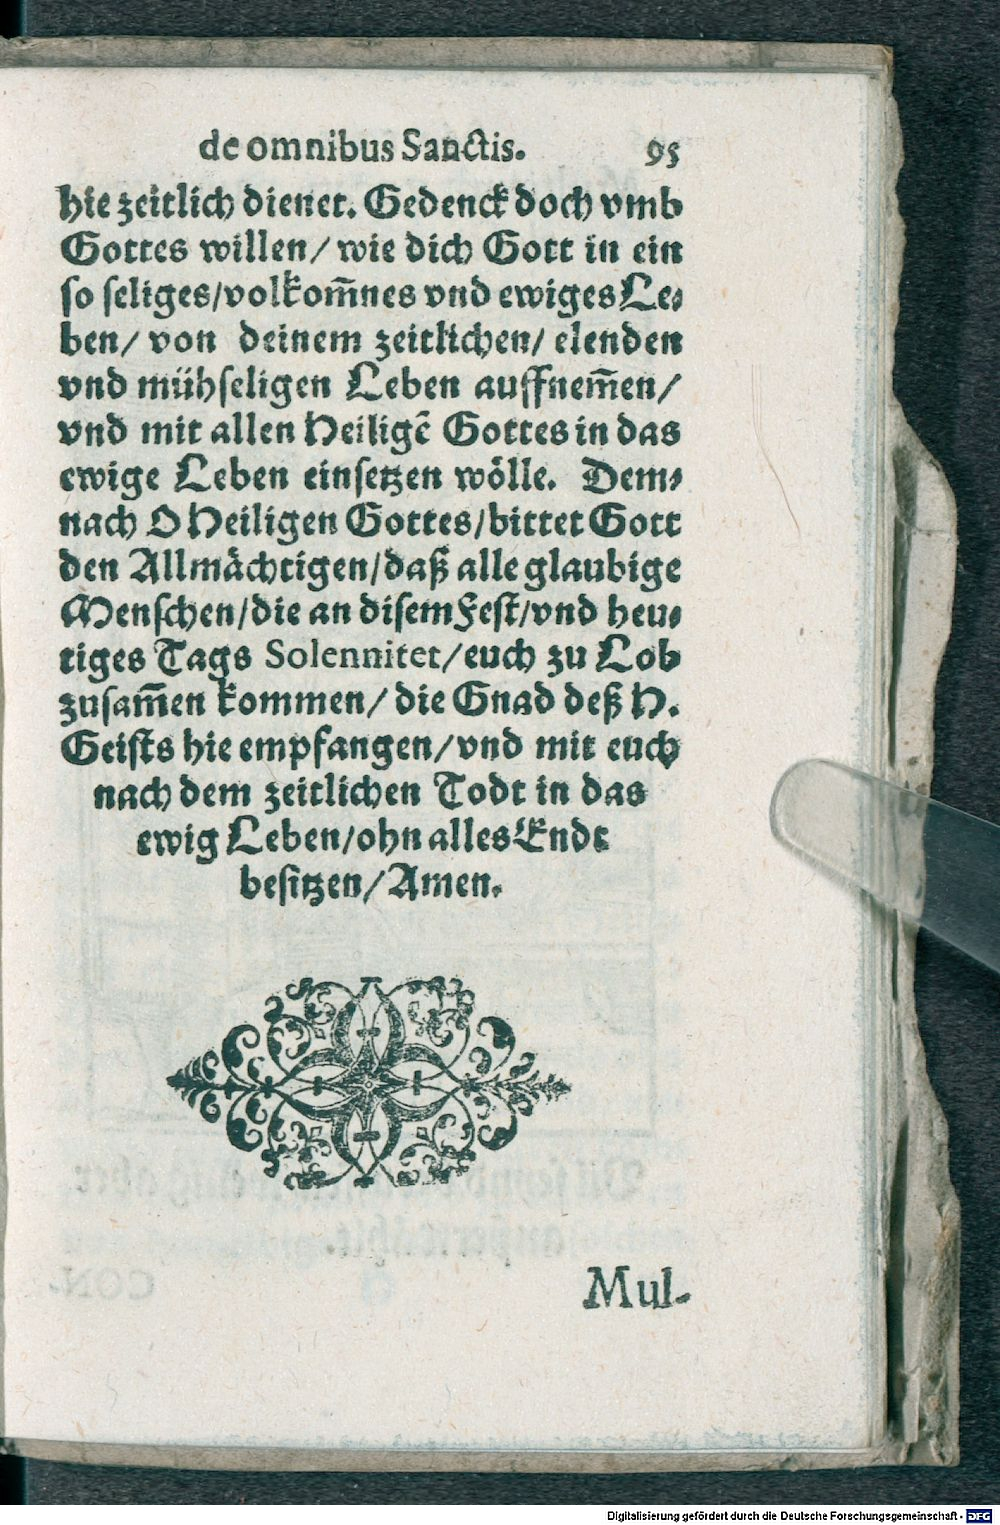 de omnibus Sanctis. 95
hie zeitlich dienet. Gedenck doch vmb
Gottes willen/ wie dich Gott in ein
so seliges/volkom̃nes vnd ewiges Le⸗
ben/ von deinem zeitlichen/ elenden
vnd mühseligen Leben auffnem̃en/
vnd mit allen Heiligẽ Gottes in das
ewige Leben einsetzen wölle. Dem⸗
nach O Heiligen Gottes/bittet Gott
den Allmächtigen/daß alle glaubige
Menschen/die an disem Fest/vnd heu⸗
tiges Tags Solennitet/euch zu Lob
zusam̃en kommen/ die Gnad deß H.
Geists hie empfangen/vnd mit euch
nach dem zeitlichen Todt in das
ewig Leben/ohn alles Ende
besitzen/Amen.
Mul-
Digitalisierung gefördert durch die Deutsche Forschungsgemeinschaft - DFG